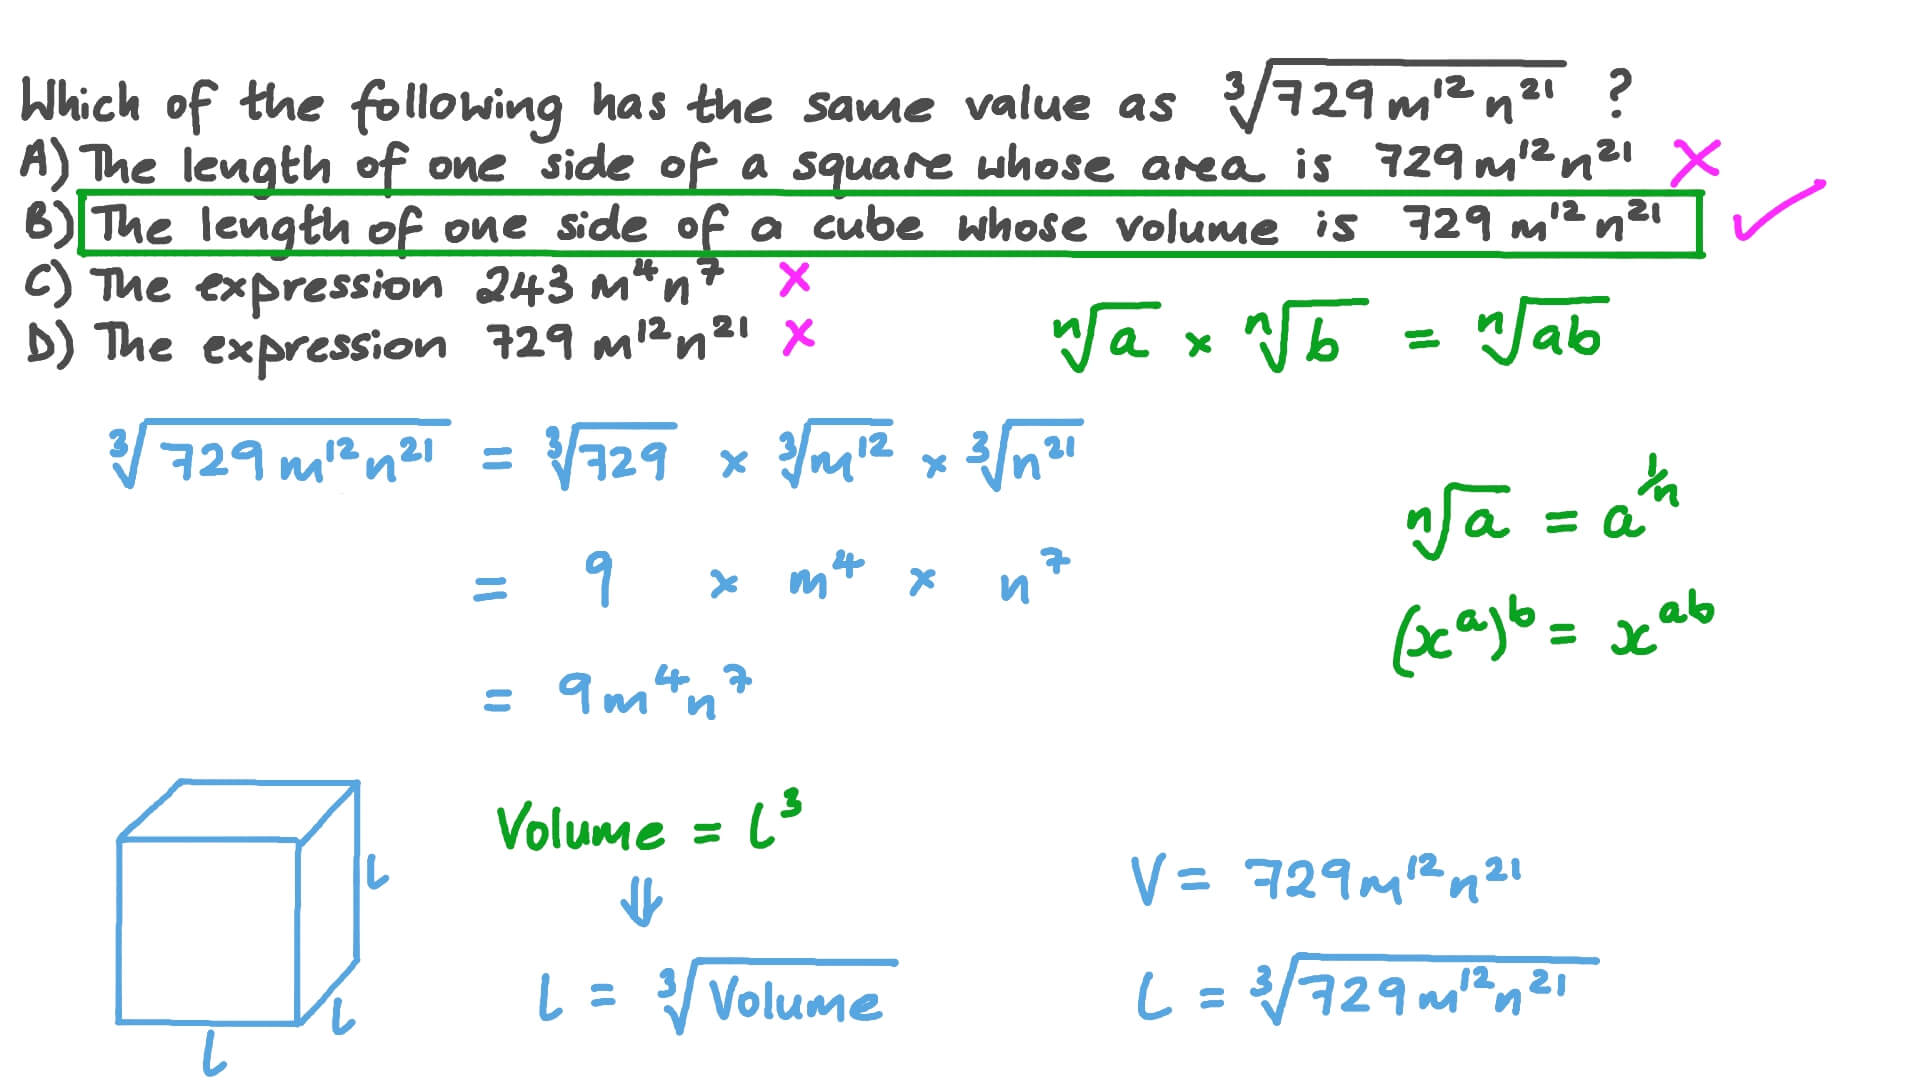 Which of the following has the same value as ∛(729m¹²n²¹) ?
A) The length of one side of a square whose area is 729m¹²n²¹ ✗
B) The length of one side of a cube whose volume is 729m¹²n²¹ ✓
C) The expression 243m⁴n⁷ ✗
D) The expression 729m¹²n²¹ ✗
ⁿ√a × ⁿ√b = ⁿ√ab
∛(729m¹²n²¹) = ∛729 × ∛m¹² × ∛n²¹
ⁿ√a = a^(1/n)
= 9 × m⁴ × n⁷
(xᵃ)ᵇ = xᵃᵇ
= 9m⁴n⁷
Volume = l³
⇓
l
V = 729m¹²n²¹
l = ∛Volume
L = ∛(729m¹²n²¹)
l
l